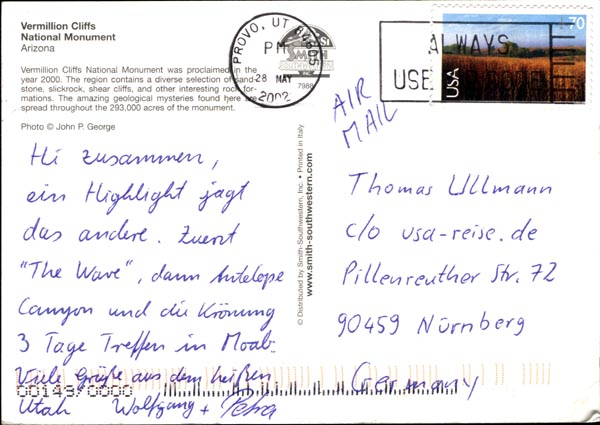 Vermillion Cliffs
National Monument
Arizona
Vermillion Cliffs National Monument was proclaimed in the
year 2000. The region contains a diverse selection of sand-
stone, slickrock, shear cliffs, and other interesting rock for-
mations. The amazing geological mysteries found here are
spread throughout the 293,000 acres of the monument.
Photo © John P. George
Hi zusammen,
ein Highlight jagt
das andere. Zuerst
"The Wave", dann Antelope
Canyon und die Krönung
3 Tage Treffen in Moab.
Viele Grüße aus dem heißen
Utah Wolfgang + Petra
00149/0000
PROVO, UT
PM
28 MAY
2002
SMITH
7988
ALWAYS
USE
70
USA
AIR
MAIL
© Distributed by Smith-Southwestern, Inc. • Printed in Italy
www.smith-southwestern.com
Thomas Ullmann
c/o usa-reise.de
Pillenreuther Str. 72
90459 Nürnberg
Germany